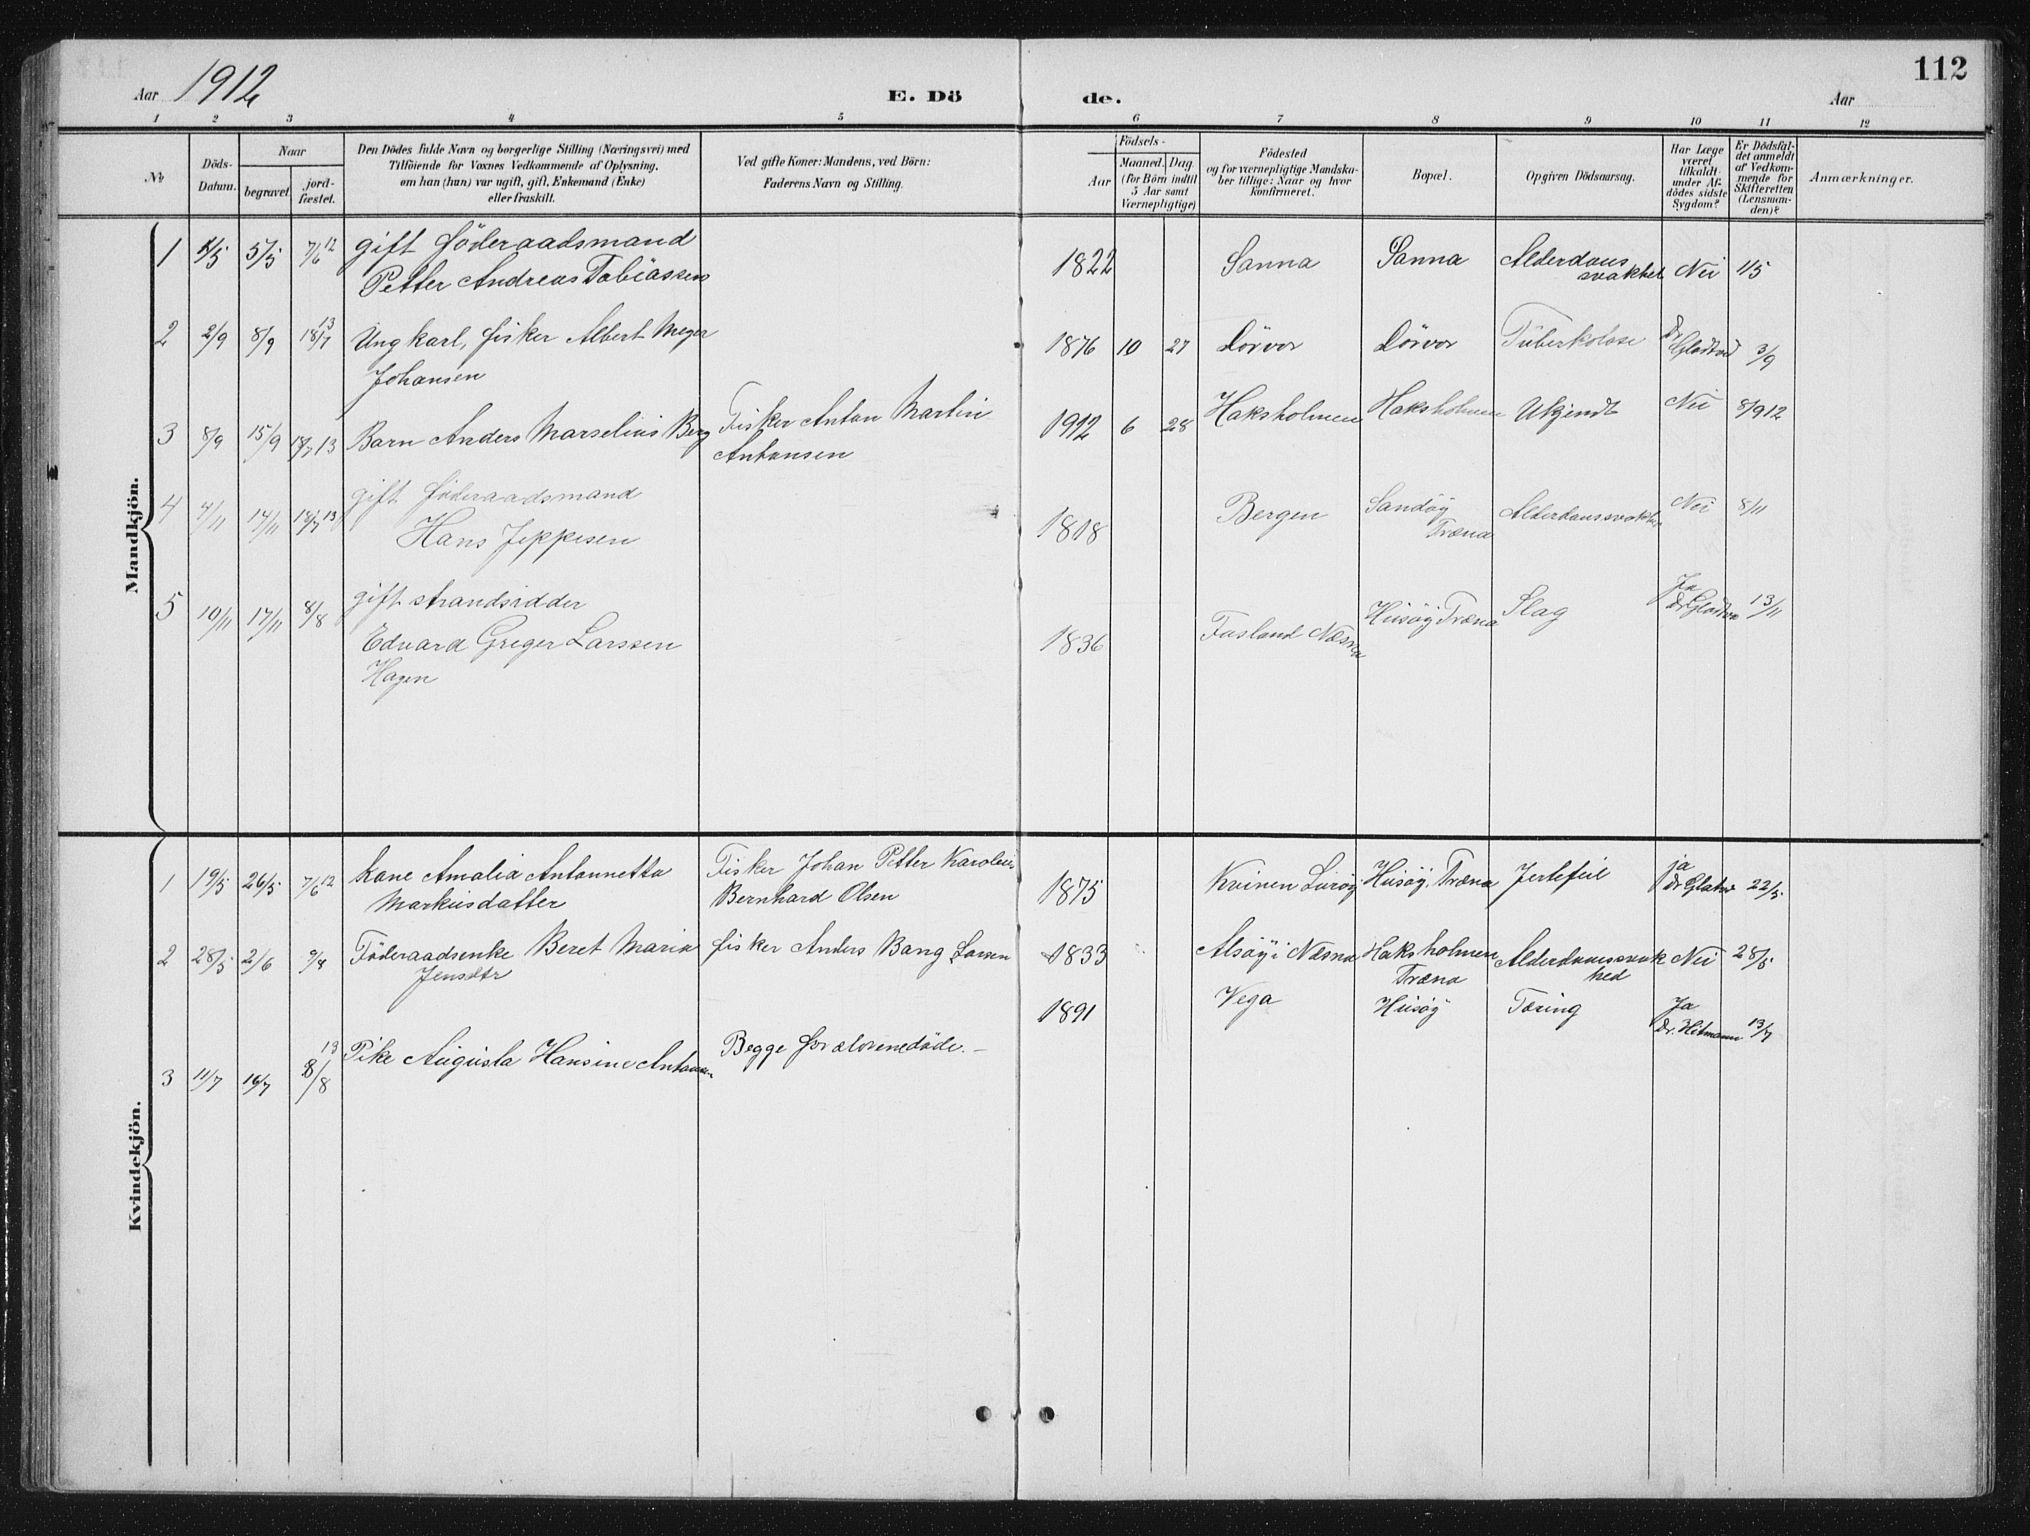 112
Aar 1912 E. Dö de. Aar
1 2 3 4 5 6 7 8 9 10 11 12
№
Döds-Datum.
Naar
begravet.
jord-fæstet.
Den Dödes fulde Navn og borgerlige Stilling (Næringsvei) med
Tilföiende for Voxnes Vedkommende af Oplysning,
om han (hun) var ugift, gift, Enkemand (Enke)
eller fraskilt.
Ved gifte Koner: Mandens, ved Börn:
Faderens Navn og Stilling.
Födsels-
Aar
Maaned. Dag.
(for Börn indtil
5 Aar samt
Værnepligtige)
Födested
og for værnepligtige Mandska-
ber tillige: Naar og hvor
konfirmeret.
Bopæl.
Opgiven Dödsaarsag.
Har Læge
været
tilkaldt
under Af-
dödes sidste
Sygdom?
Er Dödsfal-
det anmeldt
af Vedkom-
mende for
Skifteretten
(Lensman-
den)?
Anmærkninger.
Mandkjön.
1 1/5 5/5 7/6 12 gift föderaadsmand 1822 Sanna Sanna Alderdoms Nei 1/5
Petter Andreas Tobiassen svakhet
2 2/9 8/9 18/7 13 Ungkarl, fisker Albert Meyer 1876 10 27 Dørvær Dørvær Tuberkolose Dr Gladtvet 3/9
Johansen
3 8/9 15/9 18/7 13 Barn Anders Marselius Berg Fisker Anton Martin 1912 6 28 Haksholmen Haksholmen Ukjendt Nei 8/9 12
Antonsen
4 4/11 17/11 18/7 13 gift föderaadsmand Sandöy Alderdomssvakhet Nei 8/11
Hans Jeppesen 1818 Bergen Træna
5 10/11 17/11 8/8 gift strandsidder Husöy Træna Slag Ja 13/11
Edvard Greger Larssen 1836 Næsna
Hagen
Kvindekjön.
1 19/5 26/5 7/6 12 Kone Amalia Antonnetta Fisker Johan Petter Karolius 1875 Kvinen Luröy Husöy, Træna Jertefeil ja 22/5
Markusdatter Bernhard Olsen
2 28/5 2/6 9/8 Föderaadsenke Beret Maria fisker Anders Bang Larsen 1833 Alsöy i Næsna Haksholmen Alderdomssvak Nei 28/5
Jensdtr Træna hed
3 11/7 16/7 8/8 13 Pike Augusta Hansine Antonsen Begge forældrene döde. – 1891 Vega Husöy Tæring Ja 13/7
Dr. Hitmann